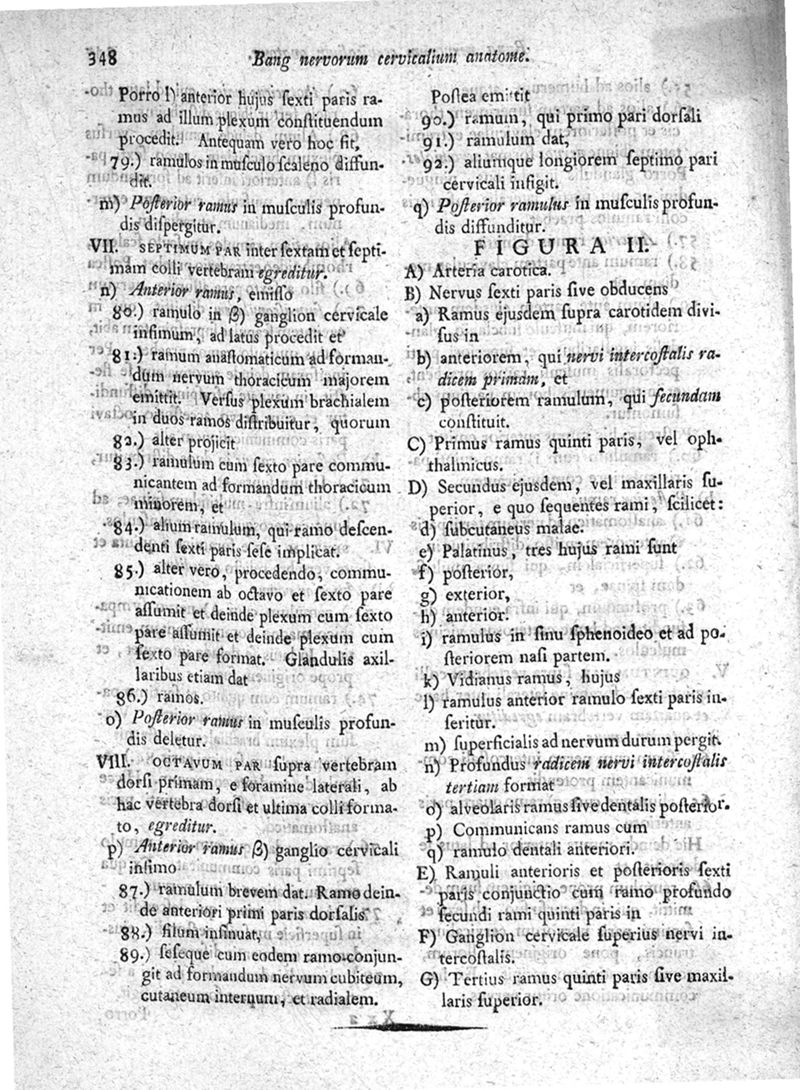 348
Bang nervorum cervicalium anatome.
Porro l) anterior hujus ſexti paris ra-
mus ad illum plexum conſtituendum
procedit. Antequam vero hoc fit,
79.) ramulos in muſculo ſcaleno diffun-
dit.
m) Poſterior ramus in muſculis profun-
dis diſpergitur.
VII. SEPTIMUM PAR inter ſextam et ſepti-
mam colli vertebram egreditur.
n) Anterior ramus, emiſſo
80.) ramulo in β) ganglion cervicale
infimum, ad latus procedit et
81.) ramum anaſtomaticum ad forman-
dum nervum thoracicum majorem
emittit. Verſus plexum brachialem
in duos ramos diſtribuitur, quorum
82.) alter projicit
83.) ramulum cum ſexto pare commu-
nicantem ad formandum thoracicum
minorem, et
84.) alium ramulum, qui ramo deſcen-
denti ſexti paris ſeſe implicat.
85.) alter vero, procedendo, commu-
nicationem ab octavo et ſexto pare
aſſumit et deinde plexum cum ſexto
pare aſſumit et deinde plexum cum
ſexto pare format. Glandulis axil-
laribus etiam dat
86.) ramos.
o) Poſterior ramus in muſculis profun-
dis deletur.
VIII. OCTAVUM PAR ſupra vertebram
dorſi primam, e foramine laterali, ab
hac vertebra dorſi et ultima colli forma-
to, egreditur.
p) Anterior ramus β) ganglio cervicali
infimo
87.) ramulum brevem dat. Ramo dein-
de anteriori primi paris dorſalis
88.) filum inſinuat,
89.) ſeſeque cum eodem ramo conjun-
git ad formandum nervum cubiteum,
cutaneum internum, et radialem.
Poſtea emittit
90.) ramum, qui primo pari dorſali
91.) ramulum dat,
92.) aliumque longiorem ſeptimo pari
cervicali infigit.
q) Poſterior ramulus in muſculis profun-
dis diffunditur.
FIGURA II.
A) Arteria carotica.
B) Nervus ſexti paris ſive obducens
a) Ramus ejusdem ſupra carotidem divi-
ſus in
b) anteriorem, qui nervi intercoſtalis ra-
dicem primam, et
c) poſteriorem ramulum, qui ſecundam
conſtituit.
C) Primus ramus quinti paris, vel oph-
thalmicus.
D) Secundus ejusdem, vel maxillaris ſu-
perior, e quo ſequentes rami, ſcilicet:
d) ſubcutaneus malae.
e) Palatinus, tres hujus rami ſunt
f) poſterior,
g) exterior,
h) anterior.
i) ramulus in ſinu ſphenoideo et ad po-
ſteriorem naſi partem.
k) Vidianus ramus, hujus
l) ramulus anterior ramulo ſexti paris in-
ſeritur.
m) ſuperficialis ad nervum durum pergit.
n) Profundus radicem nervi intercoſtalis
tertiam format
o) alveolaris ramus ſive dentalis poſterior.
p) Communicans ramus cum
q) ramulo dentali anteriori.
E) Ramuli anterioris et poſterioris ſexti
paris conjunctio cum ramo profundo
ſecundi rami quinti paris in
F) Ganglion cervicale ſuperius nervi in-
tercoſtalis.
G) Tertius ramus quinti paris ſive maxil-
laris ſuperior.